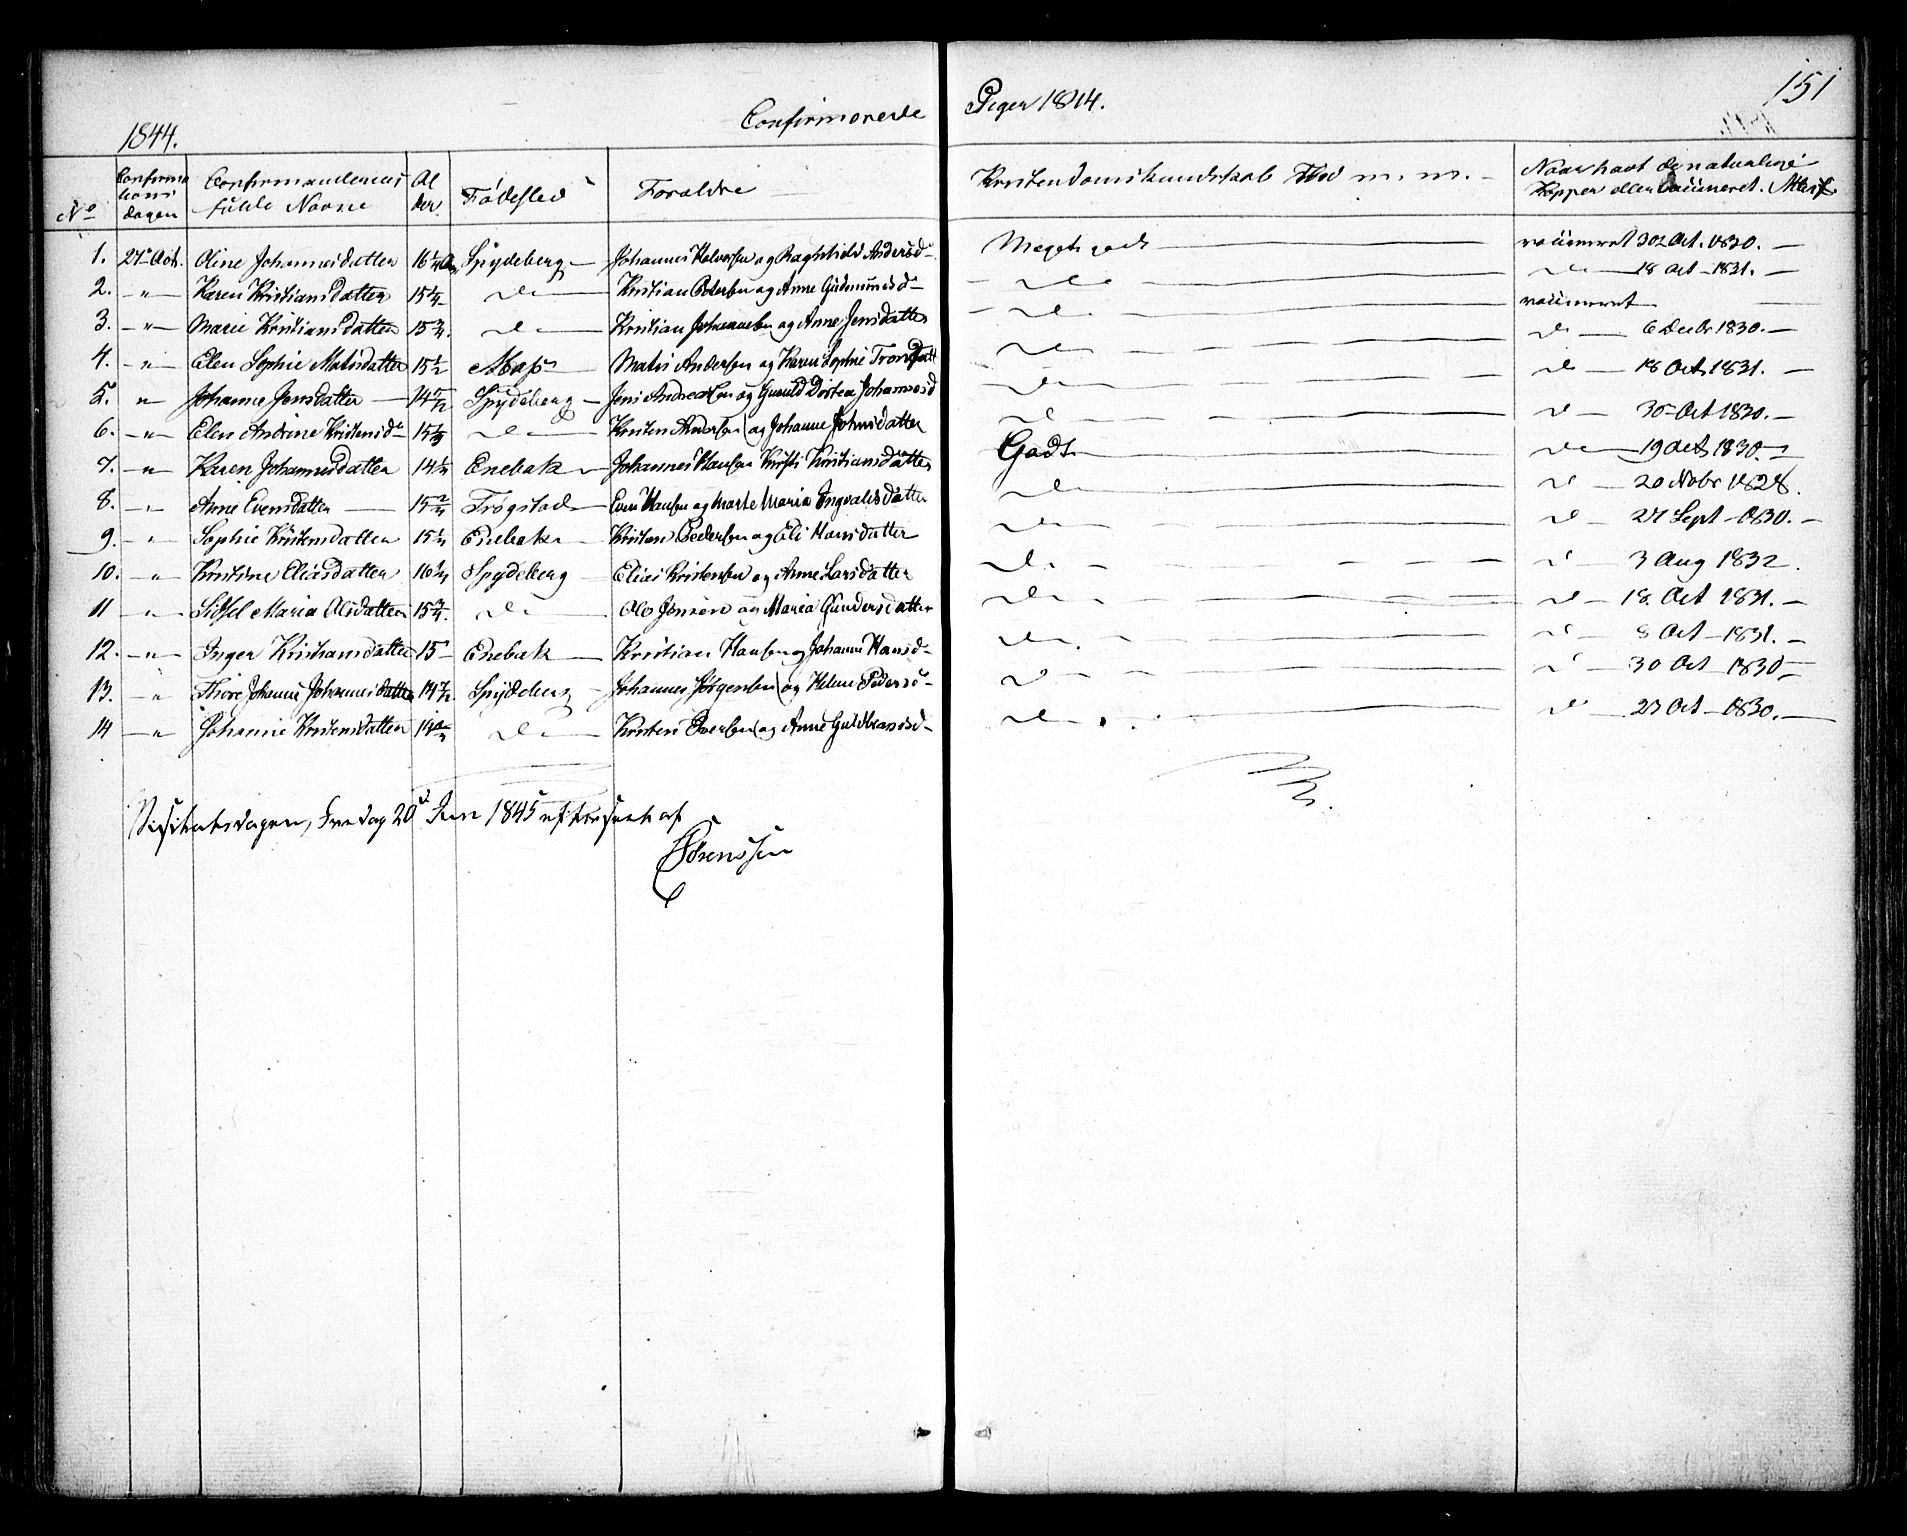 151
Confirmerede Piger 1844.
1844.
No Confirmations dagen Confirmandernes fulde Navne Alder Fødested Forældre Kristendomskundskab Flid m. m. Naar havt de naturlige Kopper eller vaccineret. Attest
1. 27de Oct. Oline Johannesdatter 16 1/4 Aar Spydeberg Johannes Halvorsen og Ragnhild Andersd Meget godt vaccineret 30 Oct. 1830.
2. " Karen Kristiansdatter 15 1/4 do Kristian Pedersen og Anne Gudmundsd do do 18 Oct 1831.
3. " Marie Kristiansdatter 15 3/4. do Kristian Johannesen og Anne Jensdatter do vaccineret
4. " Elen Sophie Matisdatter 15 1/2 Mathis Andersen og Karen Sophie do d 6 Decbr 1830.
5. " Johanne Jensdatter 14 Spydeberg Jens Andreassen og Gunild Dortea Johannesd do d 18 Oct 1831.
6. " Elen Andrine Kristensd 15 do Kristen Andersen og Johanne Johnsdatter d d 30 Oct 1830.
7. " Karen Johannesdatter 14 Enebak Johannes Hansen Kirsti Kristiansdatter Godt do 19 Oct 1830.
8. " Anne Evensdatter 15 Trøgstad Even Hansen og Marte Maria Ingvaldsdatter do d 20 Novbr 1828.
9. " Sophie Kristensdatter 15 Enebak Kristen Pedersen og Eli Hansdatter do d 27 Sept 1830.
10. " Kristine Eliasdatter 16 Spydeberg Elias Kristensen og Anne Larsdatter do d 3 Aug 1832.
11 " Sissel Maria Olsdatter 15 3/4. do Ole Jensen og Maria Gundersdatter do d 18. Oct 1831.
12. " Inger Kristiansdatter 15 Enebak Kristian Hansen og Johanne Hansd do d 8 Oct 1831.
13. " Thore Johanne Johannesdatter 14 Spydeberg Johannes Jørgensen og Helene Pedersd d d 30 Oct 1830
14 " Johanne Kristensdatter 14 do Kristen Iversen og Anne Guldbrandsd do d 27 Oct 1830.
Visitatsdagen, Fredag 20d Jun 1845 efterseet af
Sørenssen